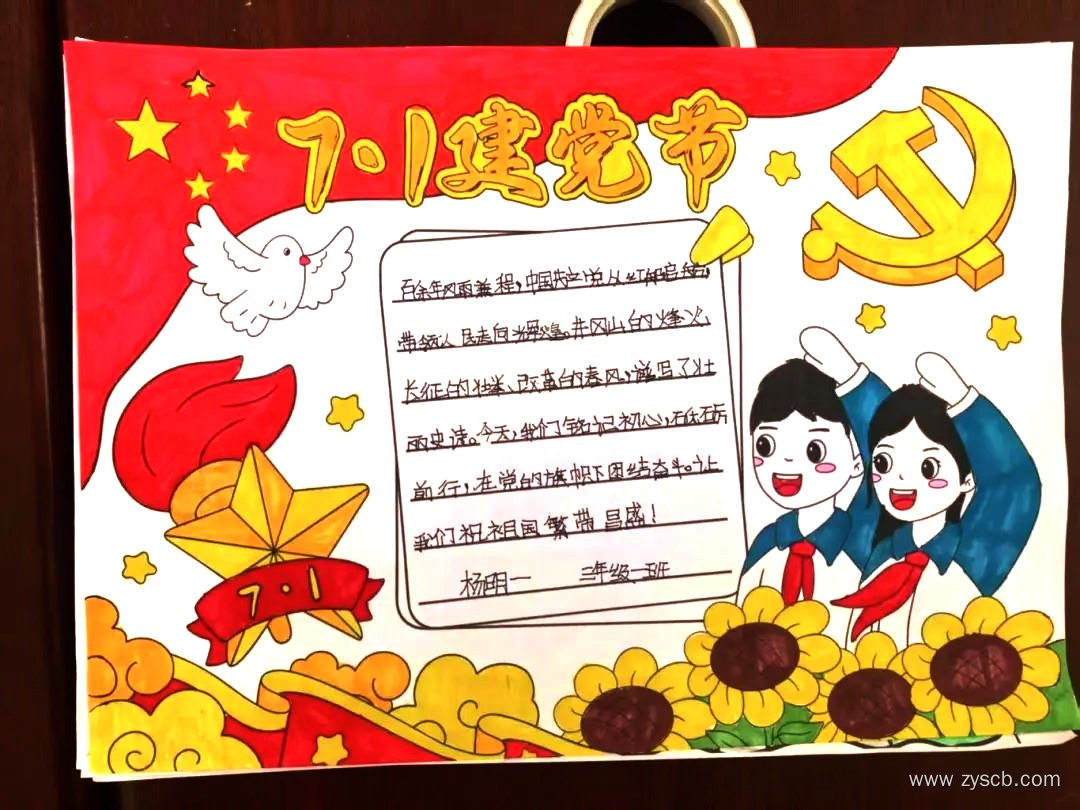 7·1建党节
百余年风雨兼程,中国共产党从红船启航,
带领人民走向辉煌。井冈山的烽火、
长征的壮举、改革的春风,谱写了壮
丽史诗。今天,我们铭记初心,砥砺
前行,在党的旗帜下团结奋斗。让
我们祝祖国繁带昌盛!
杨明一 三年级一班
7·1
www.zyscb.com